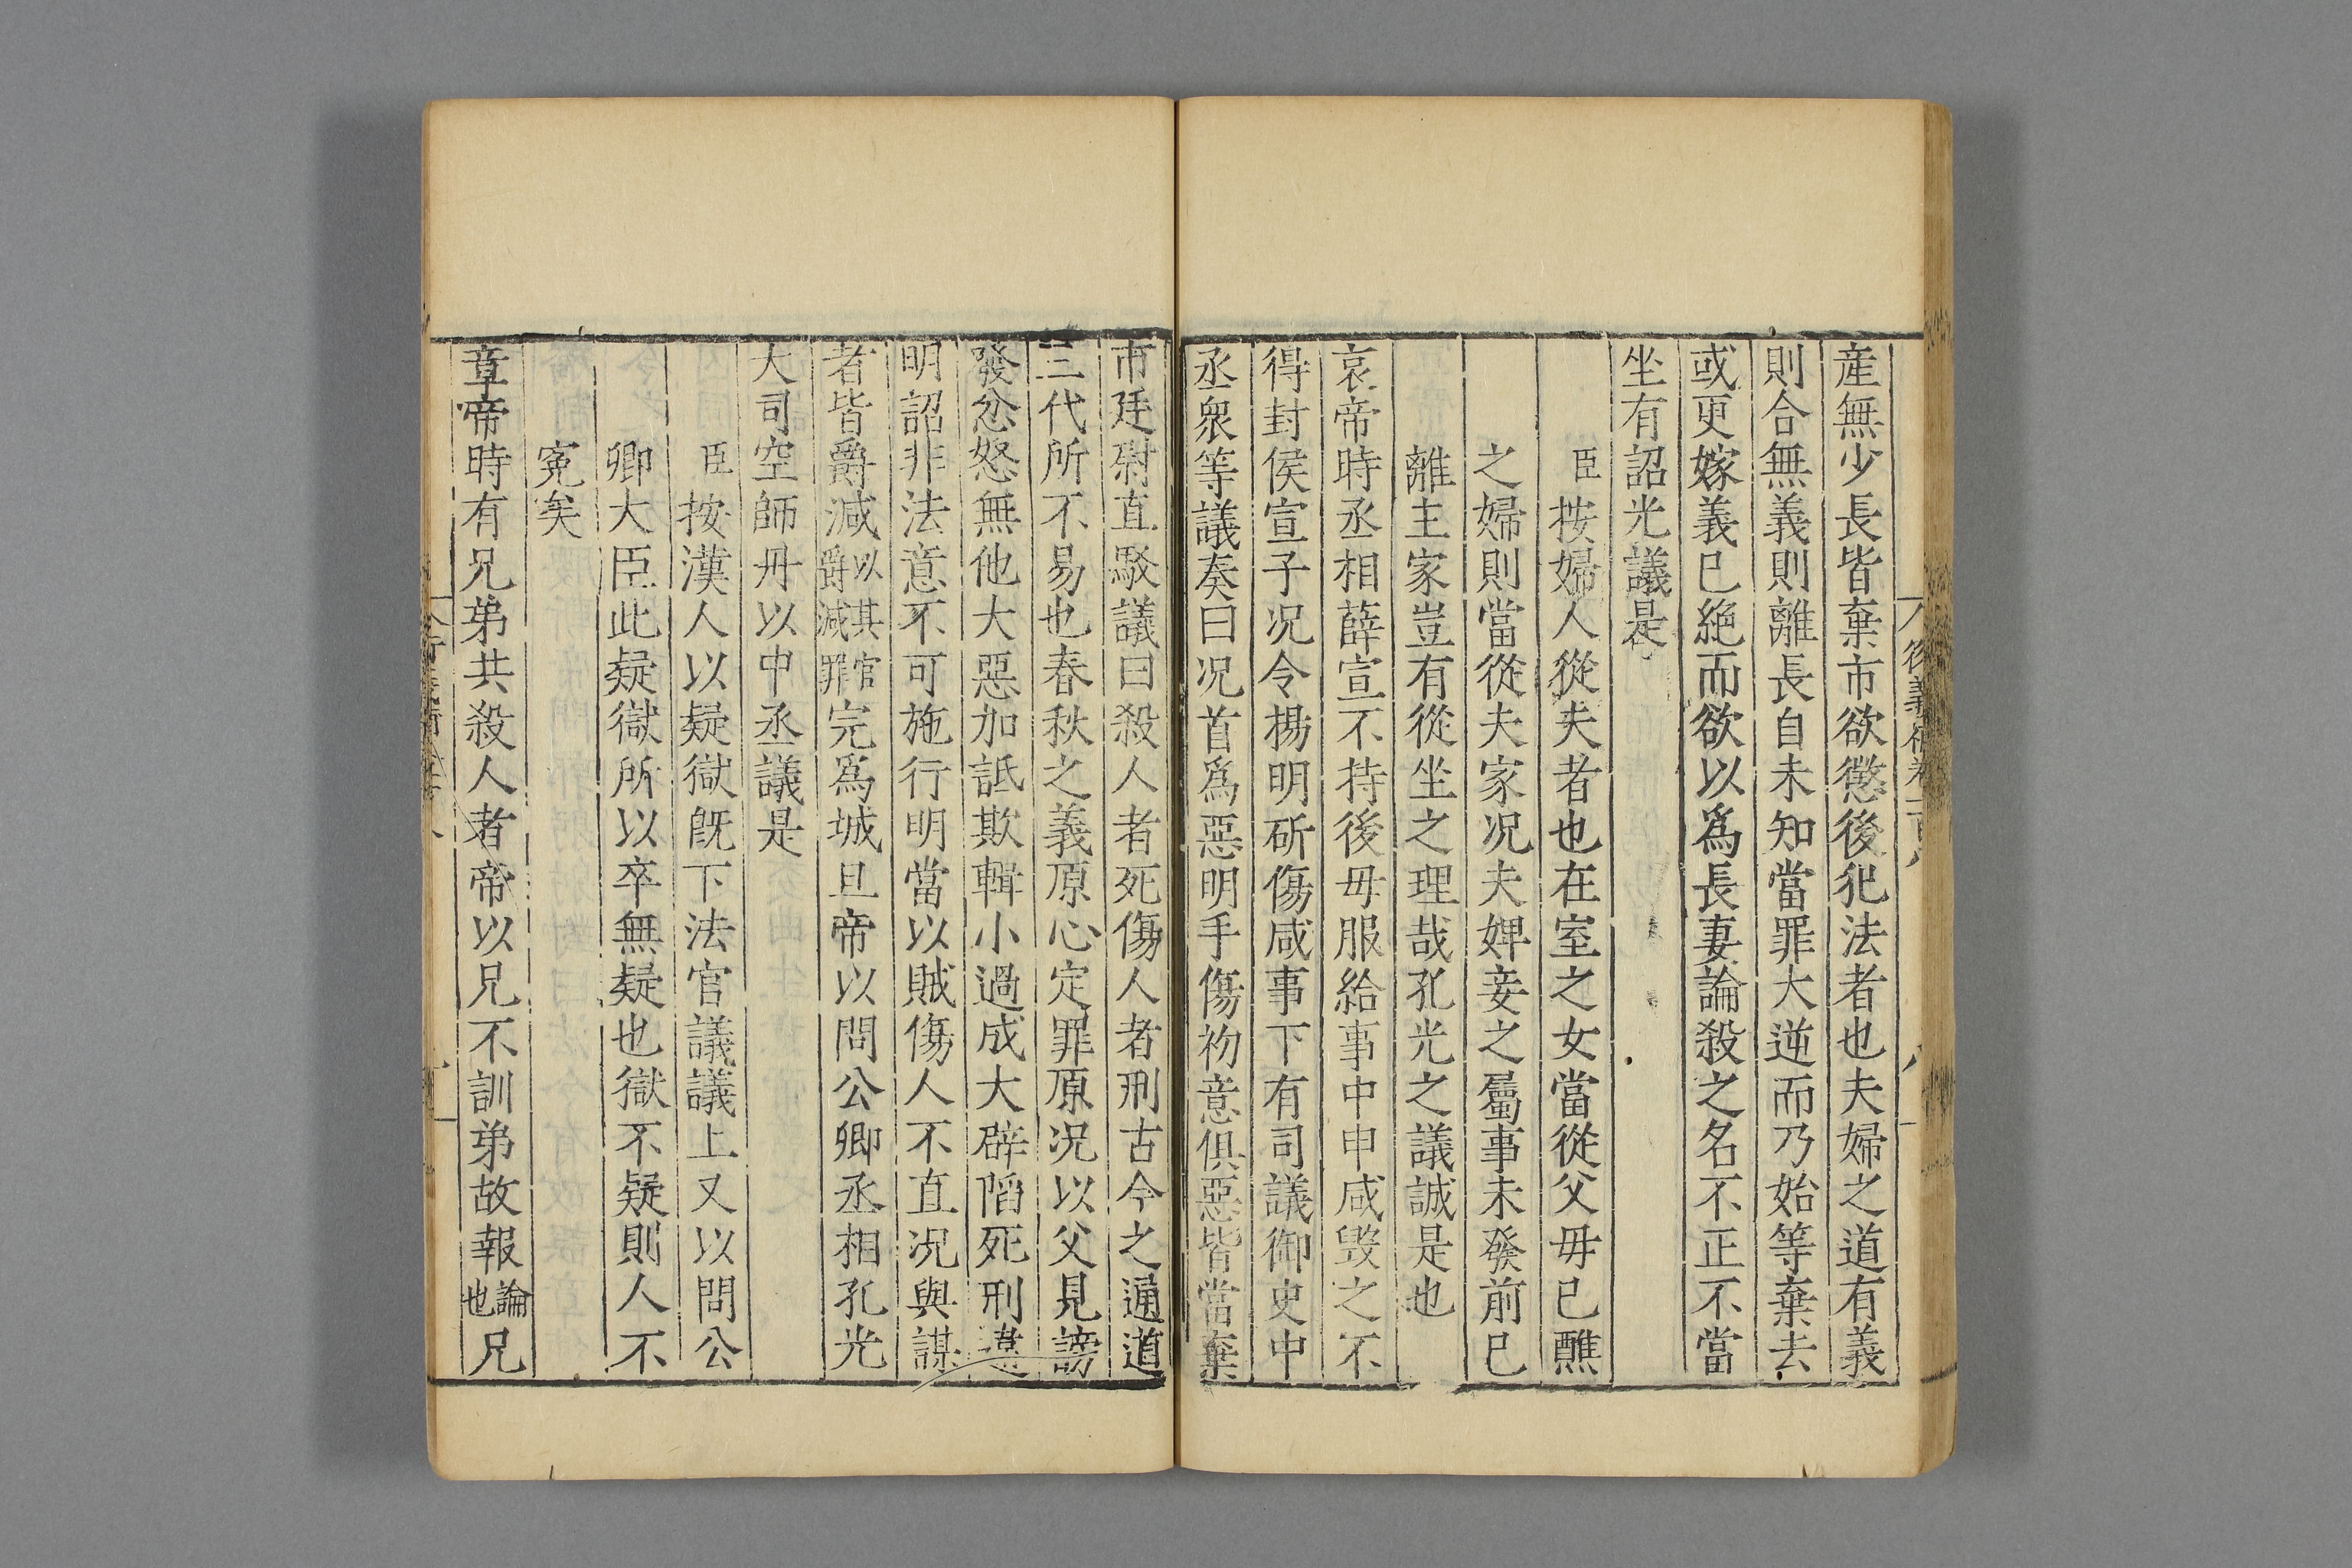 産無少長皆棄市欲懲後犯法者也夫婦之道有義
則合無義則離長自未知當罪大逆而乃始等棄去
或更嫁義已絶而欲以爲長妻論殺之名不正不當
坐有詔光議是
臣按婦人從夫者也在室之女當從父毋已醮
之婦則當從夫家况夫婢妾之屬事未發前已
離主家豈有從坐之理哉孔光之議誠是也
哀帝時丞相薛宣不持後毋服給事中申咸毁之不
得封侯宣子况令楊明斫傷咸事下有司議御史中
丞衆等議奏曰况首爲惡明手傷礿意俱惡皆當棄
市廷尉直駁議曰殺人者死傷人者刑古今之通道
三代所不易也春秋之義原心定罪原况以父見謗
發忿怒無他大惡加詆欺輯小過成大辟陷死刑違
明詔非法意不可施行明當以賊傷人不直况與謀
者皆爵減以其官爵減罪完爲城旦帝以問公卿丞相孔光
大司空師丹以中丞議是
臣按漢人以疑獄旣下法官議議上又以問公
卿大臣此疑獄所以卒無疑也獄不疑則人不
寃矣
章帝時有兄弟共殺人者帝以兄不訓弟故報論也兄